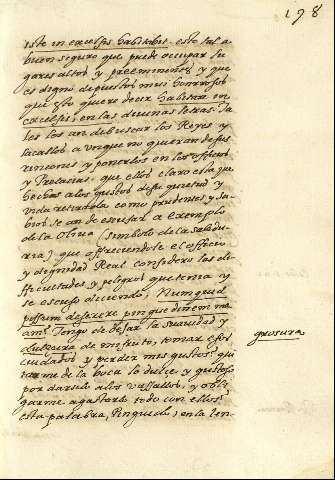 198
iste in excelsis habitabit. este tal a
buen seguro que puede occupar lu
gares altos y preeminentes y que
es digno de puestos muy honrrosos
que esto quiere decir habitar in
excelsis, en las divinas letras. Ta
les los an de buscar los Reyes y
sacallos aunque no quieran de sus
rincones y ponerlos en los officios
y Prelasias, que ellos claro esta que
hechos a los gustos de su quietud y
vida retirada como prudentes y sa
bios se an de escusar a exemplo
de la Oliva (simbolo de la sabidu
ria) que offreciendole el officio
y dignidad Real considero las di
fficultades y peligros que tenia y
se escuso diciendo, Nunquid
possum deserere pinguedinem me
am? Tengo de dejar la suavidad y
dulçura de mi fruto, tomar essos
cuidados y perder mis gustos? qui
tarme de la boca lo dulce y gustoso
por darselo a los vasallos, y obli
garme a gastarlo todo con ellos?
esta palabra, Pinguedo, en la len
grosura